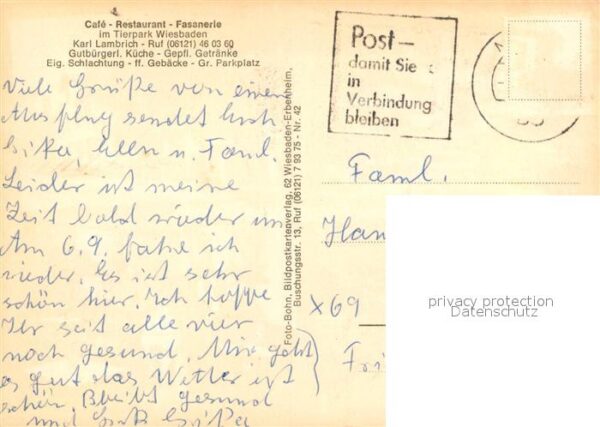 Café - Restaurant - Fasanerie
im Tierpark Wiesbaden
Karl Lambrich - Ruf (06121) 46 03 60
Gutbürgerl. Küche - Gepfl. Getränke
Eig. Schlachtung - ff. Gebäcke - Gr. Parkplatz
Viele Grüße von einem
Ausflug sendet Euch
Gika, Ellen u. Faml.
Leider ist meine
Zeit bald wieder um
Am 6.9. fahre ich
wieder. Es ist sehr
schön hier. Ich hoffe
Ihr seit alle vier
noch gesund. Mir geht
es gut das Wetter ist
schön. Bleibt gesund
und Gruß Gika
Foto-Bohn, Bildpostkartenverlag, 62 Wiesbaden-Erbenheim,
Buschungsstr. 13, Ruf (06121) 7 93 75 - Nr. 42
Post–
damit Sie
in
Verbindung
bleiben
Faml.
Han
X 69
privacy protection
Datenschutz